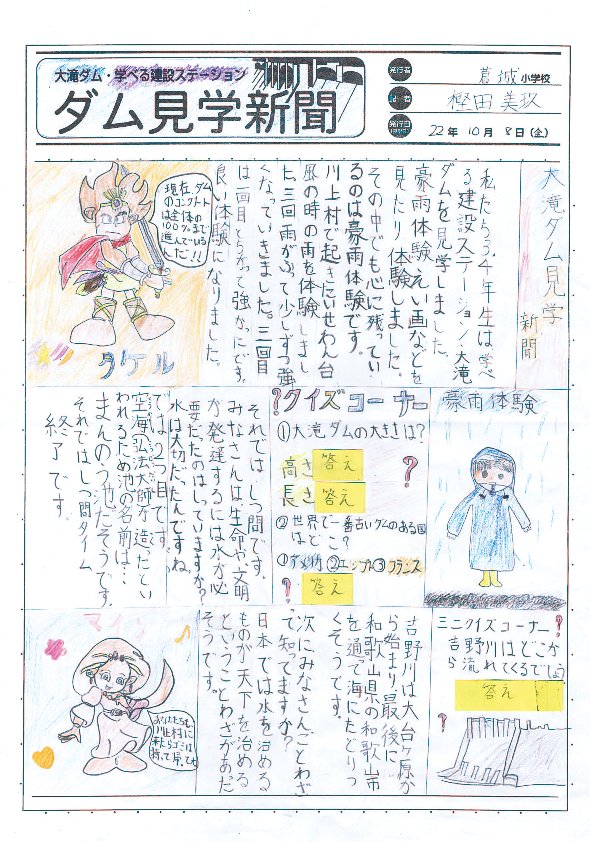 大滝ダム・学べる建設ステーション
ダム見学新聞
発行者
葛城小学校
記者
樫田美玖
発行日
22年10月8日(金)
大滝ダム見学
新聞
私たち4年生は、学べ
る建設ステーション大滝
ダムを見学しました。
豪雨体験えい画などを
見たり体験しました。
その中でも心に残ってい
るのは豪雨体験です。
川上村で起きたいせわん台
風の時の雨を体験しまし
た。三回雨がふって少しずつ強
くなっていきました。三回目
は一回目とちがって強かったです。
良い体験になりました。
現在、ダム
のコンクリート
は全体の
100%まで
進んでいるん
だ!!
タケル
豪雨体験
?クイズコーナー
①大滝ダムの大きさは?
高さ 答え
長さ 答え
?
②世界で一番古いダムのある国
はどこ?
①アメリカ②エジプト③フランス
? 答え
それでは、しつ問です。
みなさんは、生命や、文明
が発達するには水が必
要だったのはしっていますか?
水は大切だったんですね。
では2つ目です。
空海(弘法大師)が造ったとい
われるため池の名前は…
まんのう池だそうです。
それではしつ問タイム
終了です。
ミニクイズコーナー?
吉野川はどこか
ら流れてくるでしょう
答え
?
吉野川は大台ヶ原か
ら始まり、最後に
和歌山県の和歌山市
を通って海にたどりつ
くそうです。
次にみなさんことわざ
で知ってますか?
日本では水を治める
ものが天下を治める
ということわざがあだ
そうです。
マイン
あなたたちも
川上村に
来たらゴミは
持って帰ってね